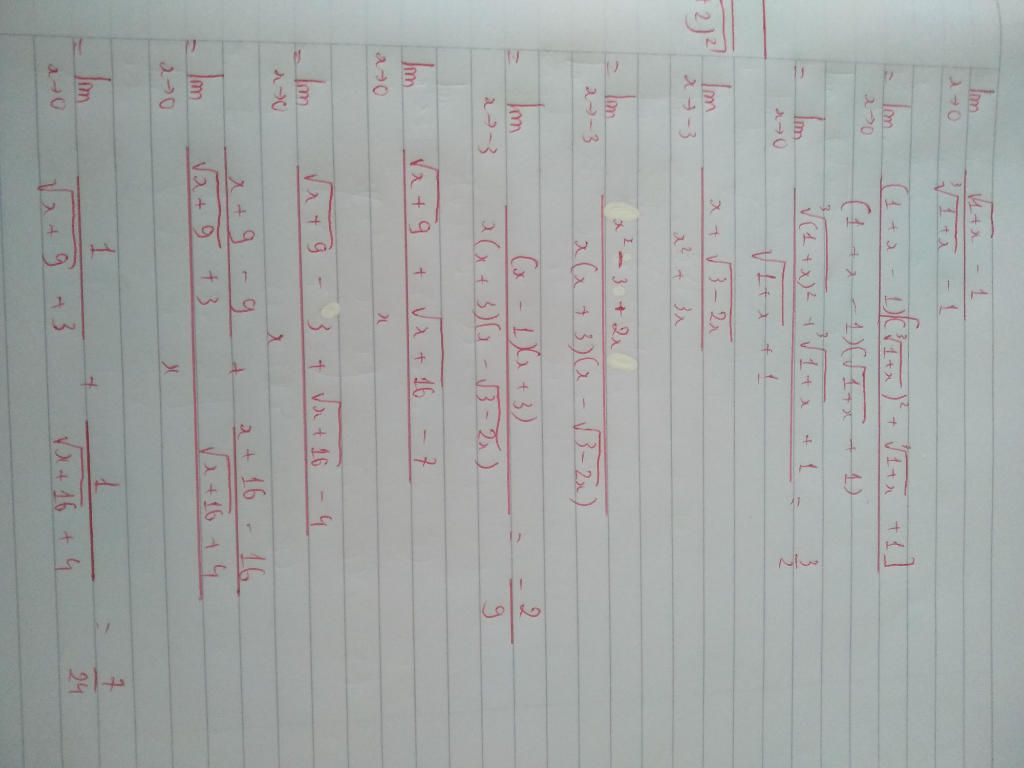 +2)²
lim x→0 (√(1+x) - 1)/(∛(1+x) - 1)
= lim x→0 ((1 + x - 1)[(∛(1+x))² + ∛(1+x) + 1])/((1 + x - 1)(√(1+x) + 1))
= lim x→0 (∛(1+x)² + ∛(1+x) + 1)/(√(1+x) + 1) = 3/2
lim x→-3 (x + √(3-2x))/(x² + 3x)
= lim x→-3 (x² - 3 + 2x)/(x(x + 3)(x - √(3-2x)))
= lim x→-3 ((x - 1)(x + 3))/(x(x + 3)(x - √(3-2x))) = -2/9
lim x→0 (√(x+9) + √(x+16) - 7)/x
= lim x→0 (√(x+9) - 3 + √(x+16) - 4)/x
= lim x→0 ((x + 9 - 9)/(√(x+9) + 3) + (x + 16 - 16)/(√(x+16) + 4))/x
= lim x→0 1/(√(x+9) + 3) + 1/(√(x+16) + 4) = 7/24